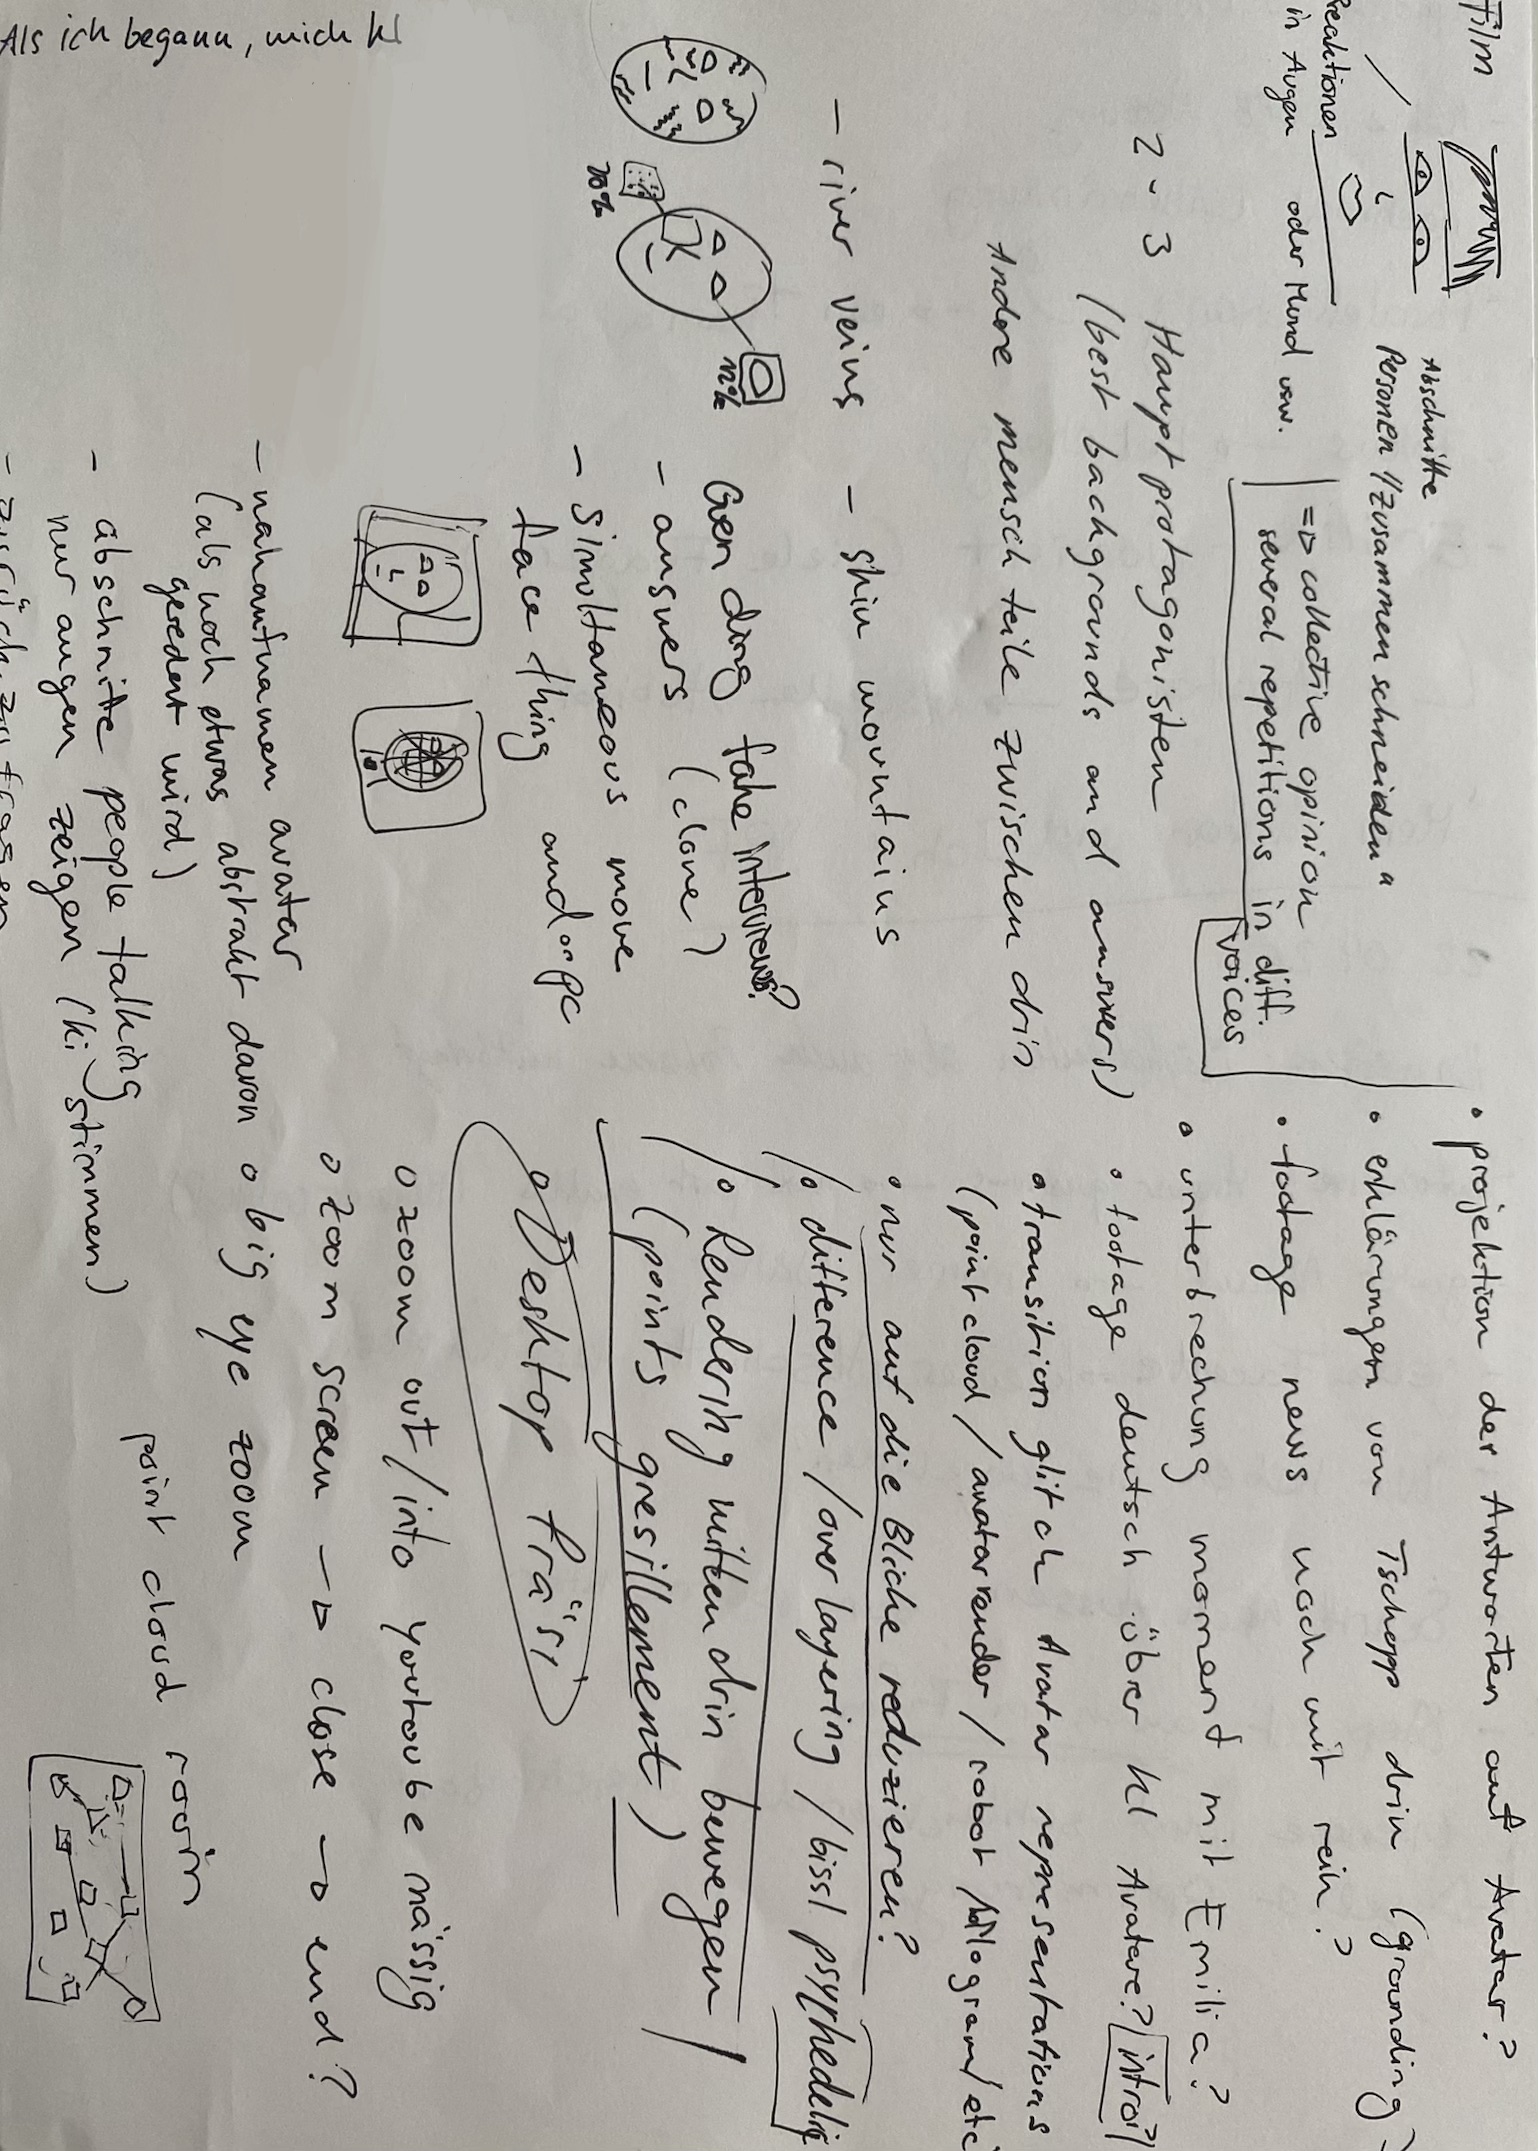 Film
Abschnitte
Personen "zusammenschneiden"
Reaktionen
in Augen oder Mund usw.
=> collective opinion
several repetitions in diff.
voices
2-3 Hauptprotagonisten
(best backgrounds and answers)
Andere mensch teile zwischen drin
- river veins - skin mountains
70%
12%
Gen ding fake interviews?
- answers (clone?)
- simultaneous move
face thing and pc
- nahaufnamen avatar
(als noch etwas abstrakt davon
geredet wird)
- abschnitte people talking
nur augen zeigen (ki stimmen)
• projektion der Antworten auf Avatar?
• erklärungen von Tschopp drin (grounding)
• footage news noch mit rein?
• unterbrechung moment mit Emilia?
• footage deutsch über KI Avatare? intro?
• transition glitch Avatar representations
(point cloud / avatar render / robot / etc
• nur auf die Blicke reduzieren?
• difference / over layering / bissl psyhedelic
• Rendering mitten drin bewegen
(points gresillement)
• Desktop Präsi
o zoom out/into youtoube mässig
o zoom screen -> close -> end?
o big eye zoom
point cloud room
Als ich begann, mich